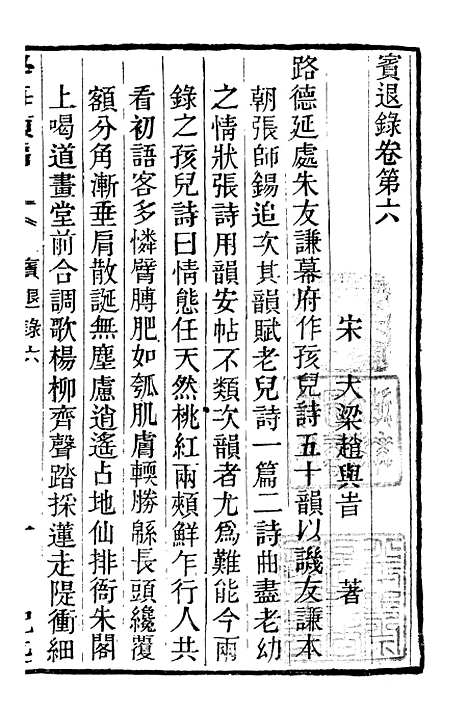 賓退錄卷第六
宋 大梁趙與旹 著
路德延處朱友謙幕府作孩兒詩五十韻以譏友謙本
朝張師錫追次其韻賦老兒詩一篇二詩曲盡老幼
之情狀張詩用韻安帖不類次韻者尤爲難能今兩
錄之孩兒詩曰情態任天然桃紅兩頰鮮乍行人共
看初語客多憐臂膊肥如瓠肌膚輭勝緜長頭纔覆
額分角漸垂肩散誕無塵慮逍遙占地仙排衙朱閣
上喝道畫堂前合調歌楊柳齊聲踏採蓮走隄衝細
賓退錄六